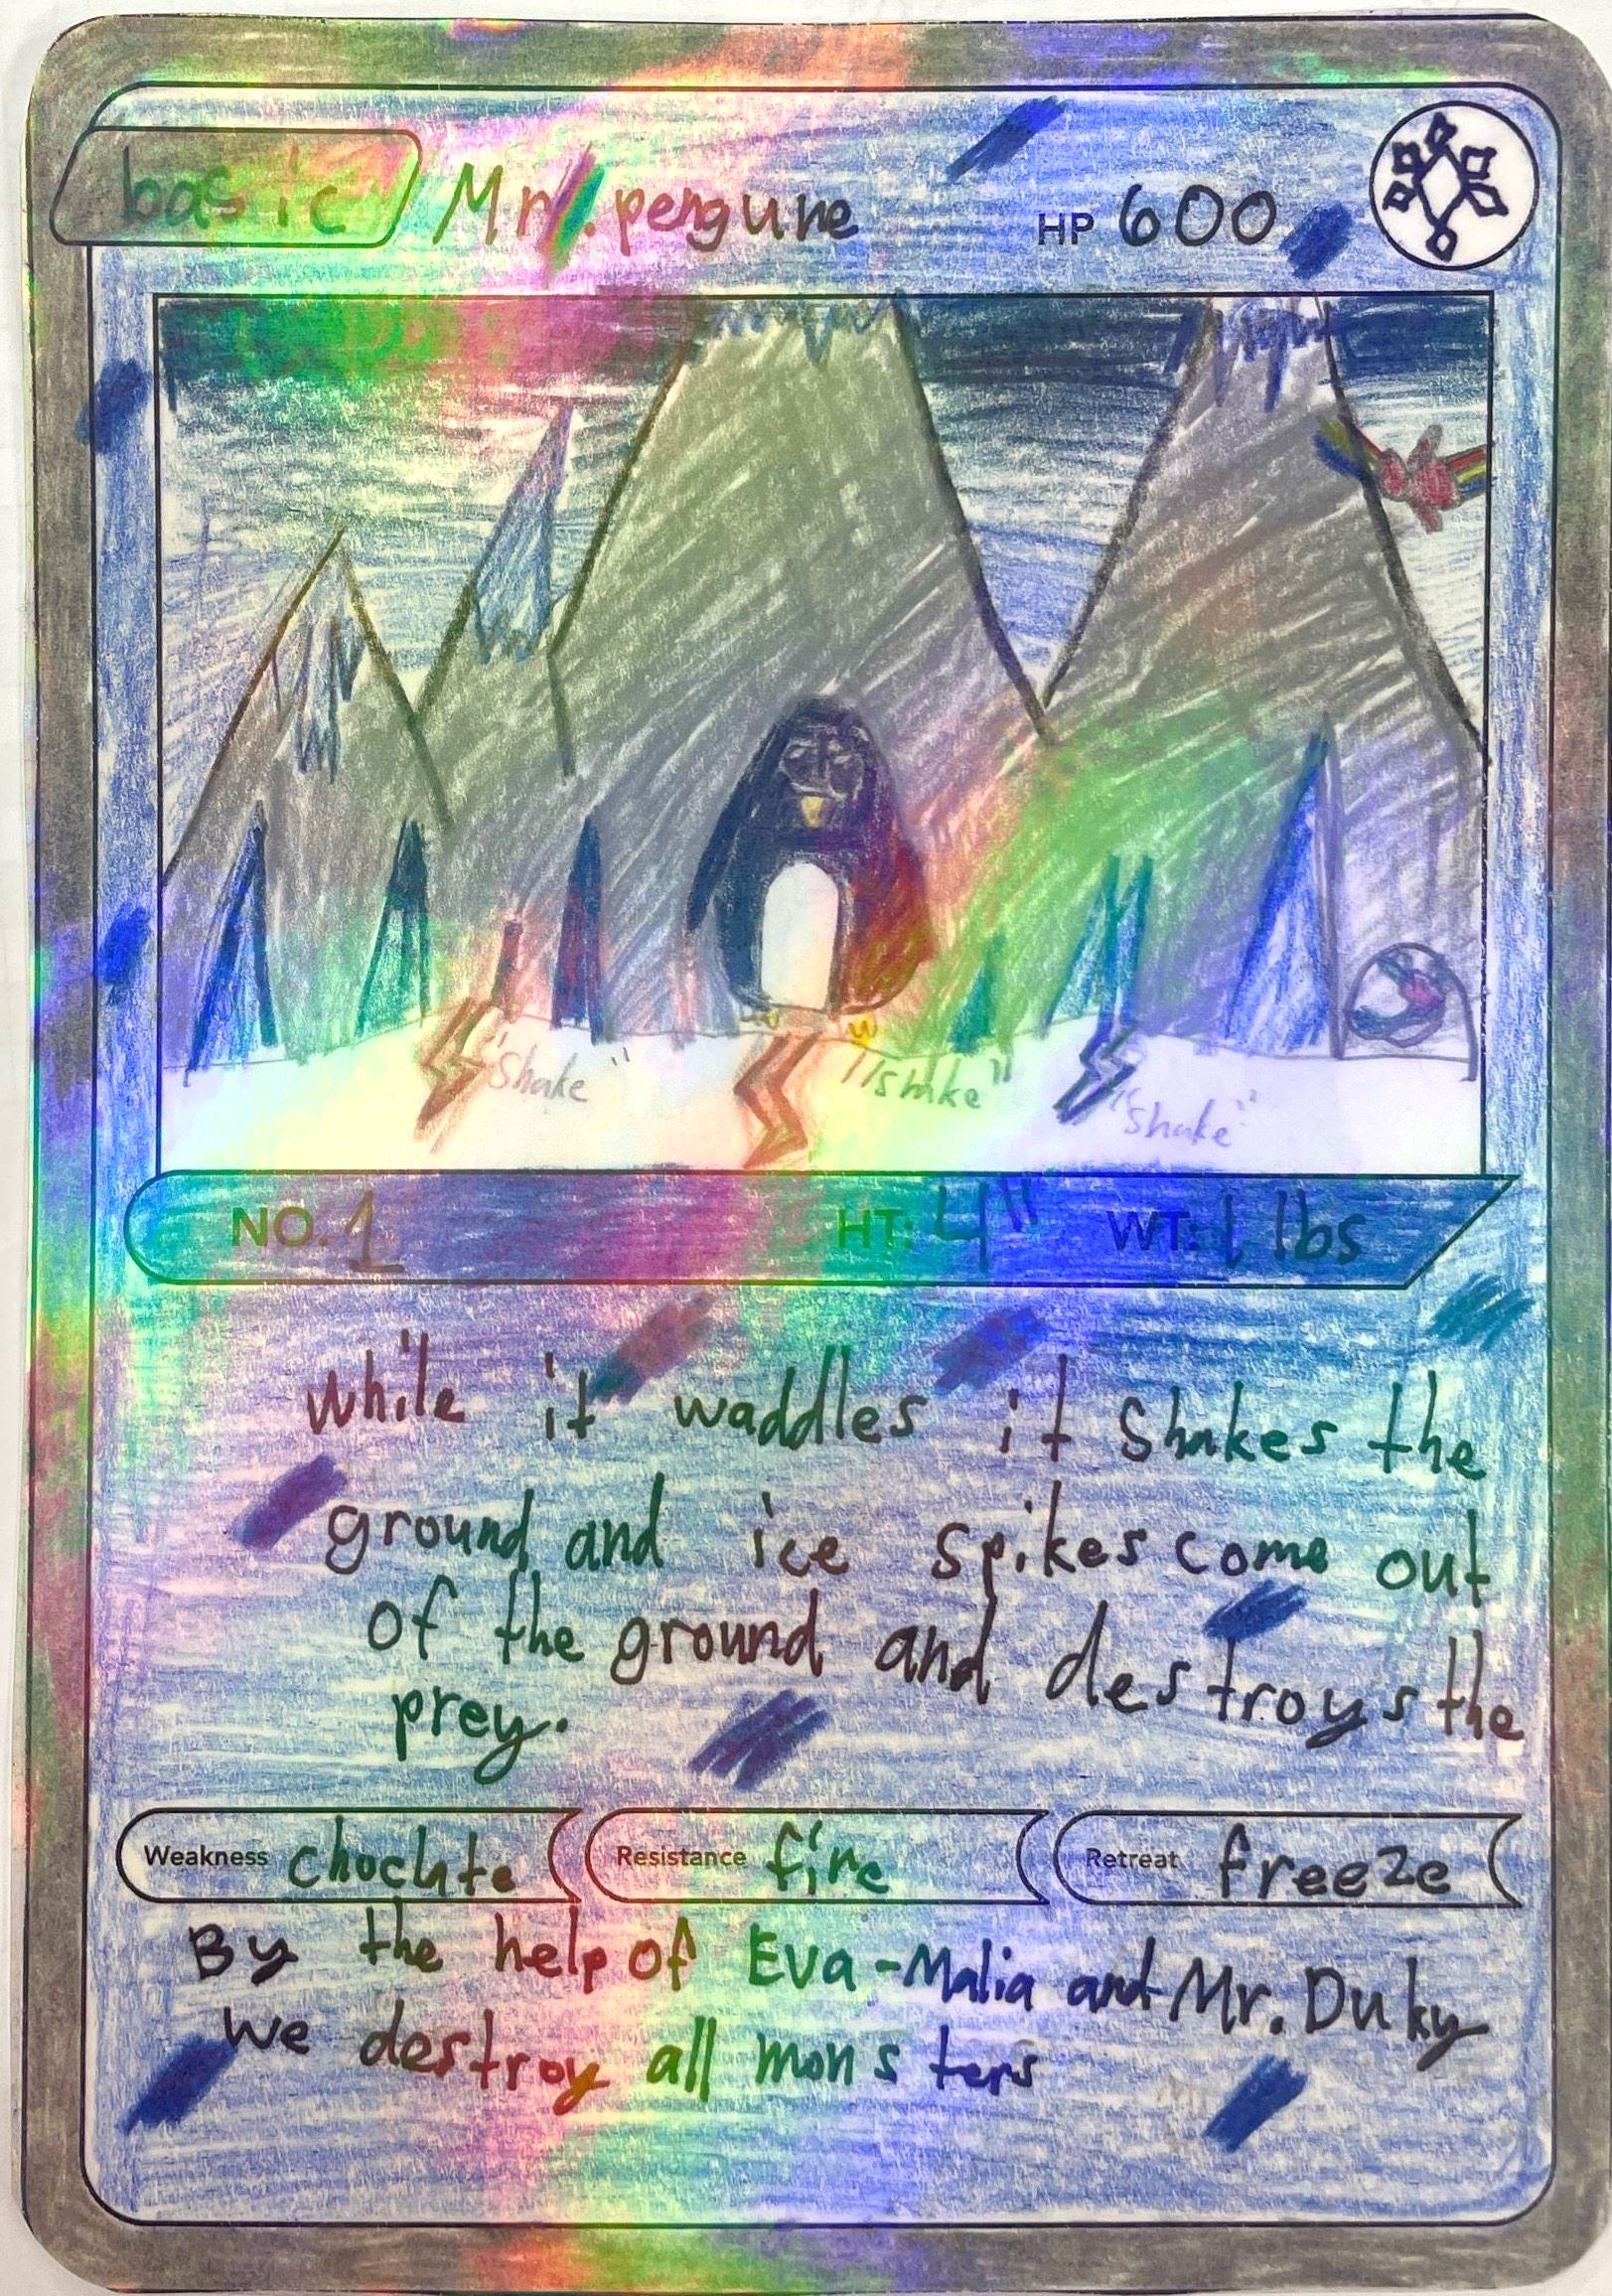 basic Mr.pengune HP 600
"Shake" "shake" "Shake"
NO. 1 HT: 4" WT: 1 lbs
while it waddles it Shakes the
ground and ice spikes come out
of the ground and destroys the
prey.
Weakness choclte Resistance fire Retreat freeze
By the help of Eva-Malia and Mr. Duky
We destroy all monsters